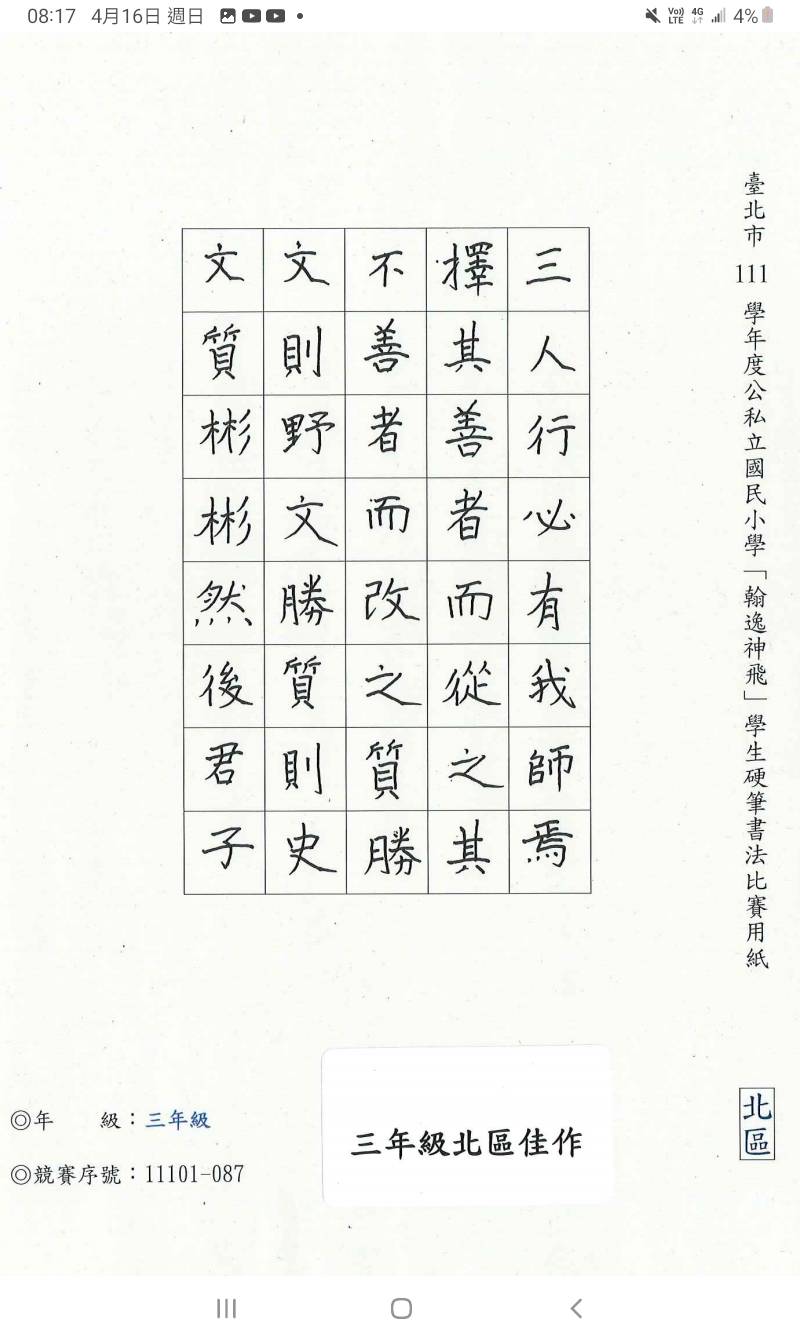 08:17 4月16日 週日
Vo)) LTE 4G 4%
臺北市 111 學年度公私立國民小學「翰逸神飛」學生硬筆書法比賽用紙
三人行必有我師焉
擇其善者而從之其
不善者而改之質勝
文則野文勝質則史
文質彬彬然後君子
北區
◎年 級：三年級
◎競賽序號：11101-087
三年級北區佳作